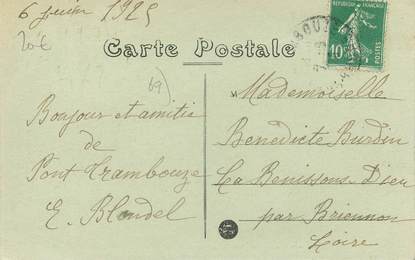 6 juin 1925
20€
Carte Postale
69)
REPUBLIQUE FRANÇAISE
10c
POSTES
Bonjour et amitié
de
Pont Trambouze
E. Blondel
M
Mademoiselle
Benedicte Burdin
La Benissons Dieu
par Briennon
Loire